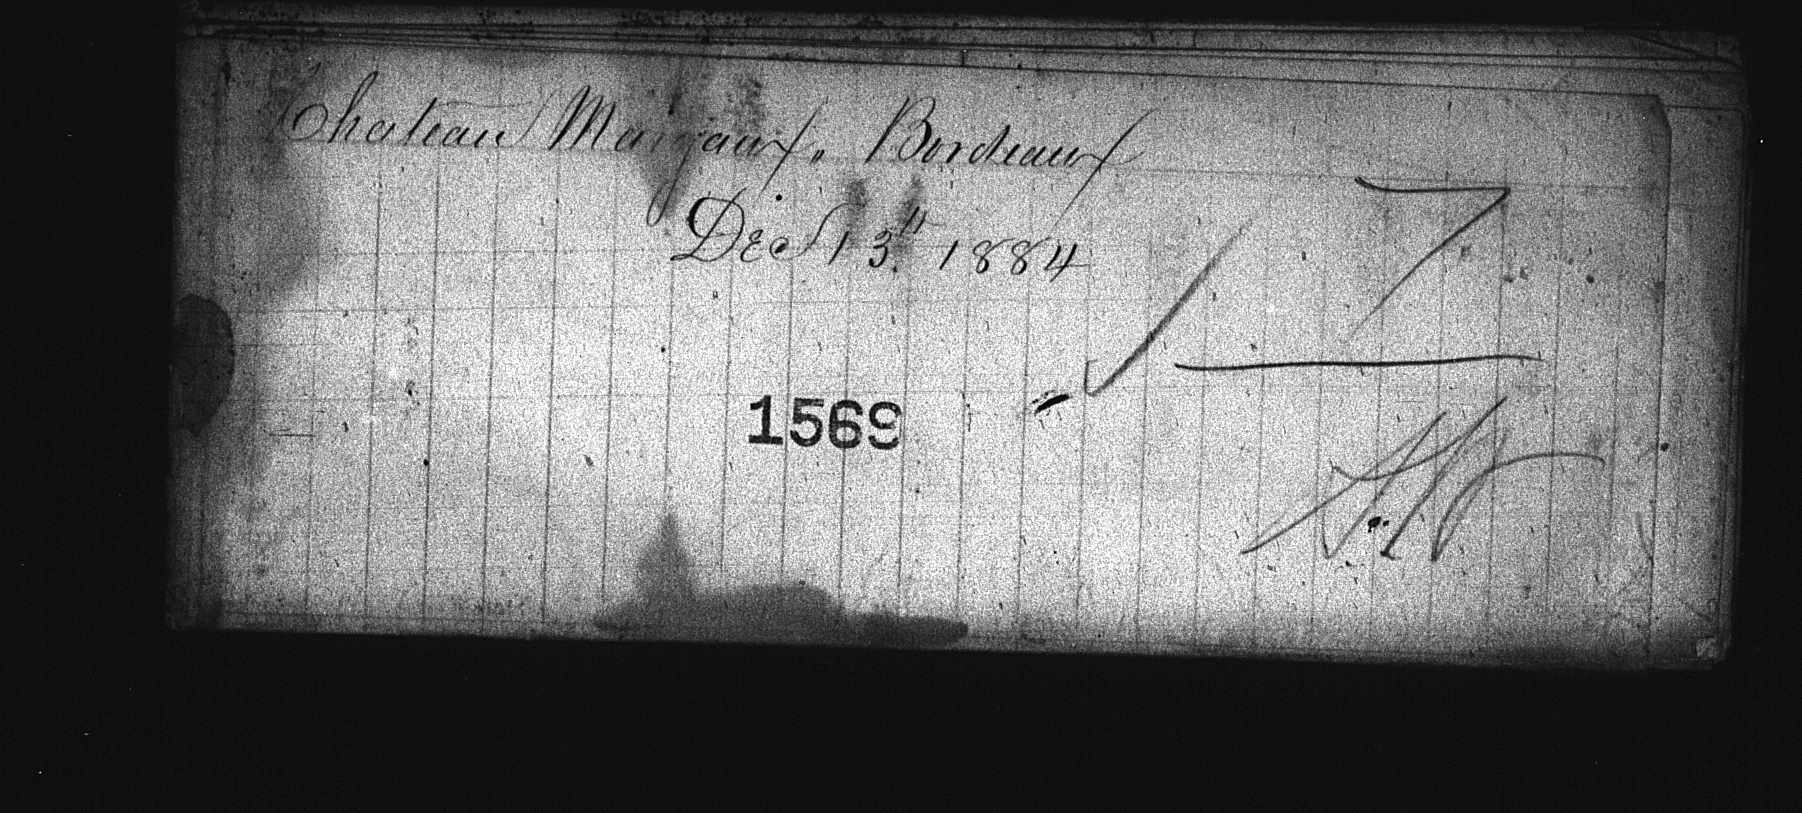 Chateau Margaux, Bordeaux
Dec 13th 1884
7
1569